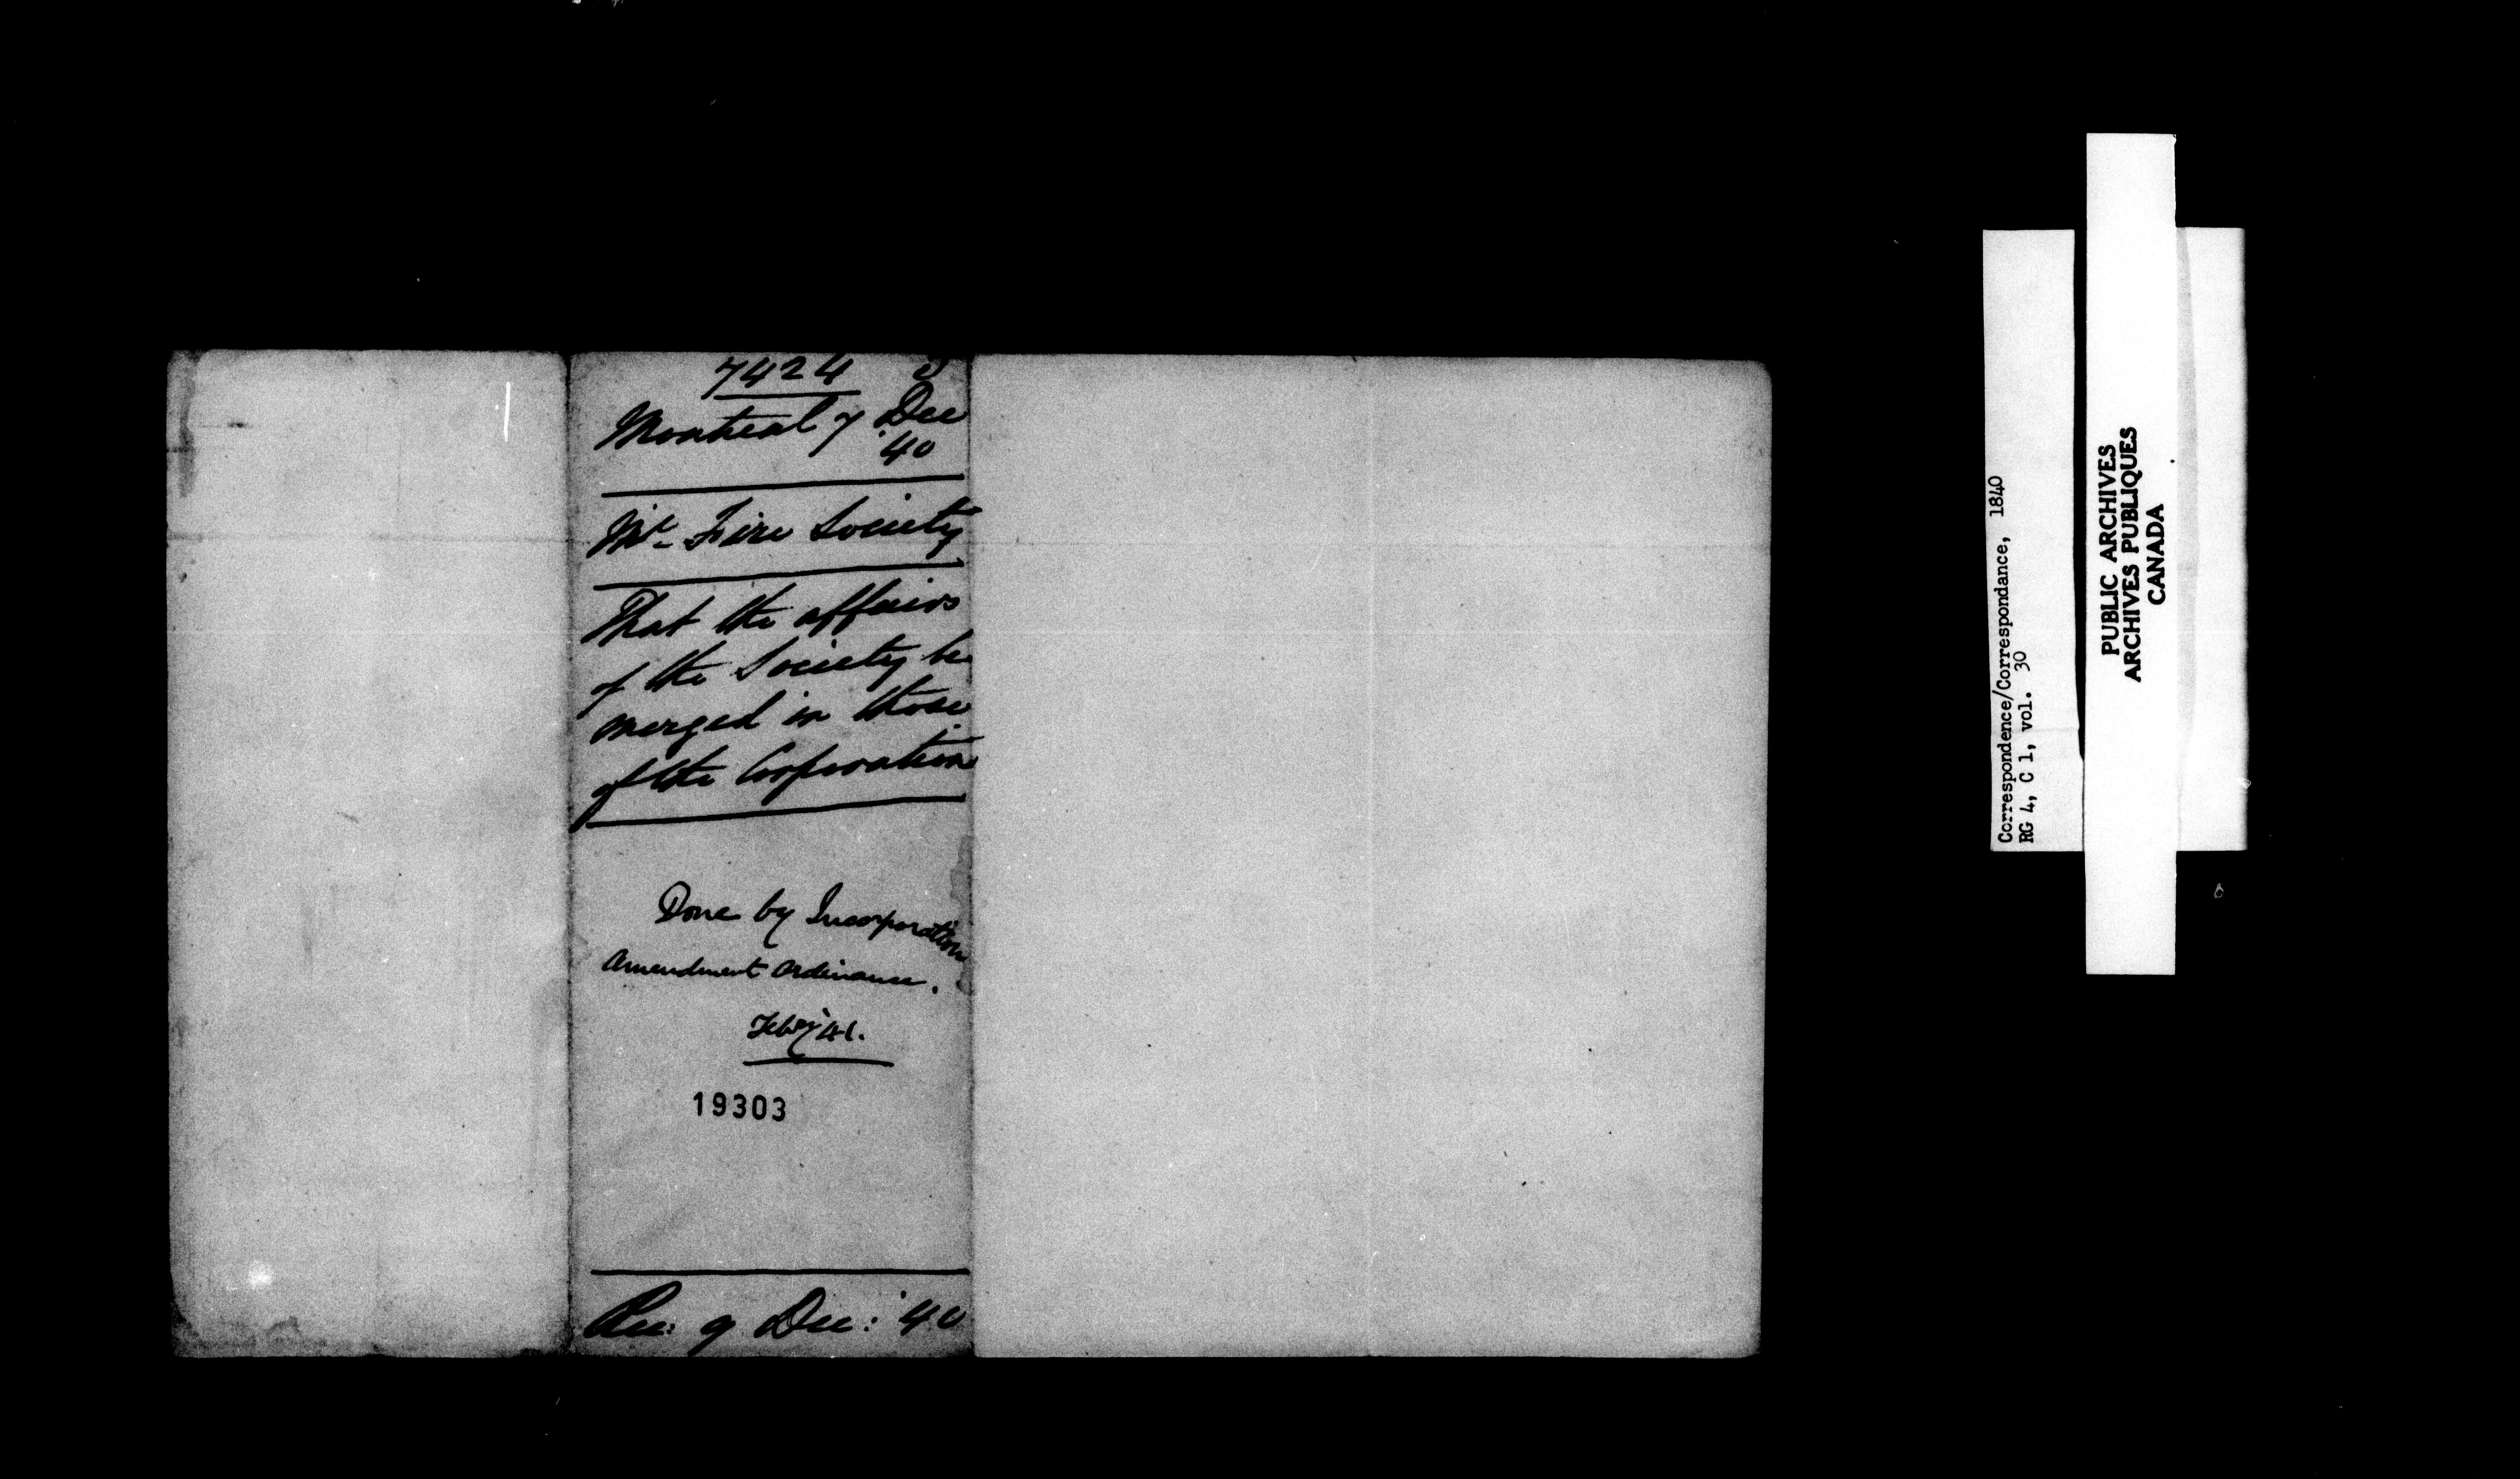 7424 3
Montreal 7 Dec
'40
Ml. Fire Society
That the affairs
of the Society be
merged in those
of the Corporation
Done by Incorporation
Amendment Ordinance.
Feby '41.
19303
Rec: 9 Dec: '40
Correspondence/Correspondance, 1840
RG 4, C 1, vol. 30
PUBLIC ARCHIVES
ARCHIVES PUBLIQUES
CANADA